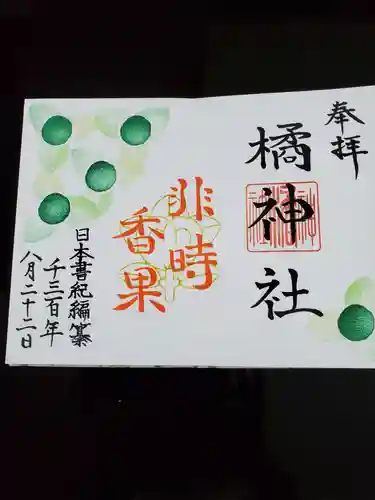 奉拝
橘神社
非時
香果
日本書紀編纂
千三百年
八月二十二日